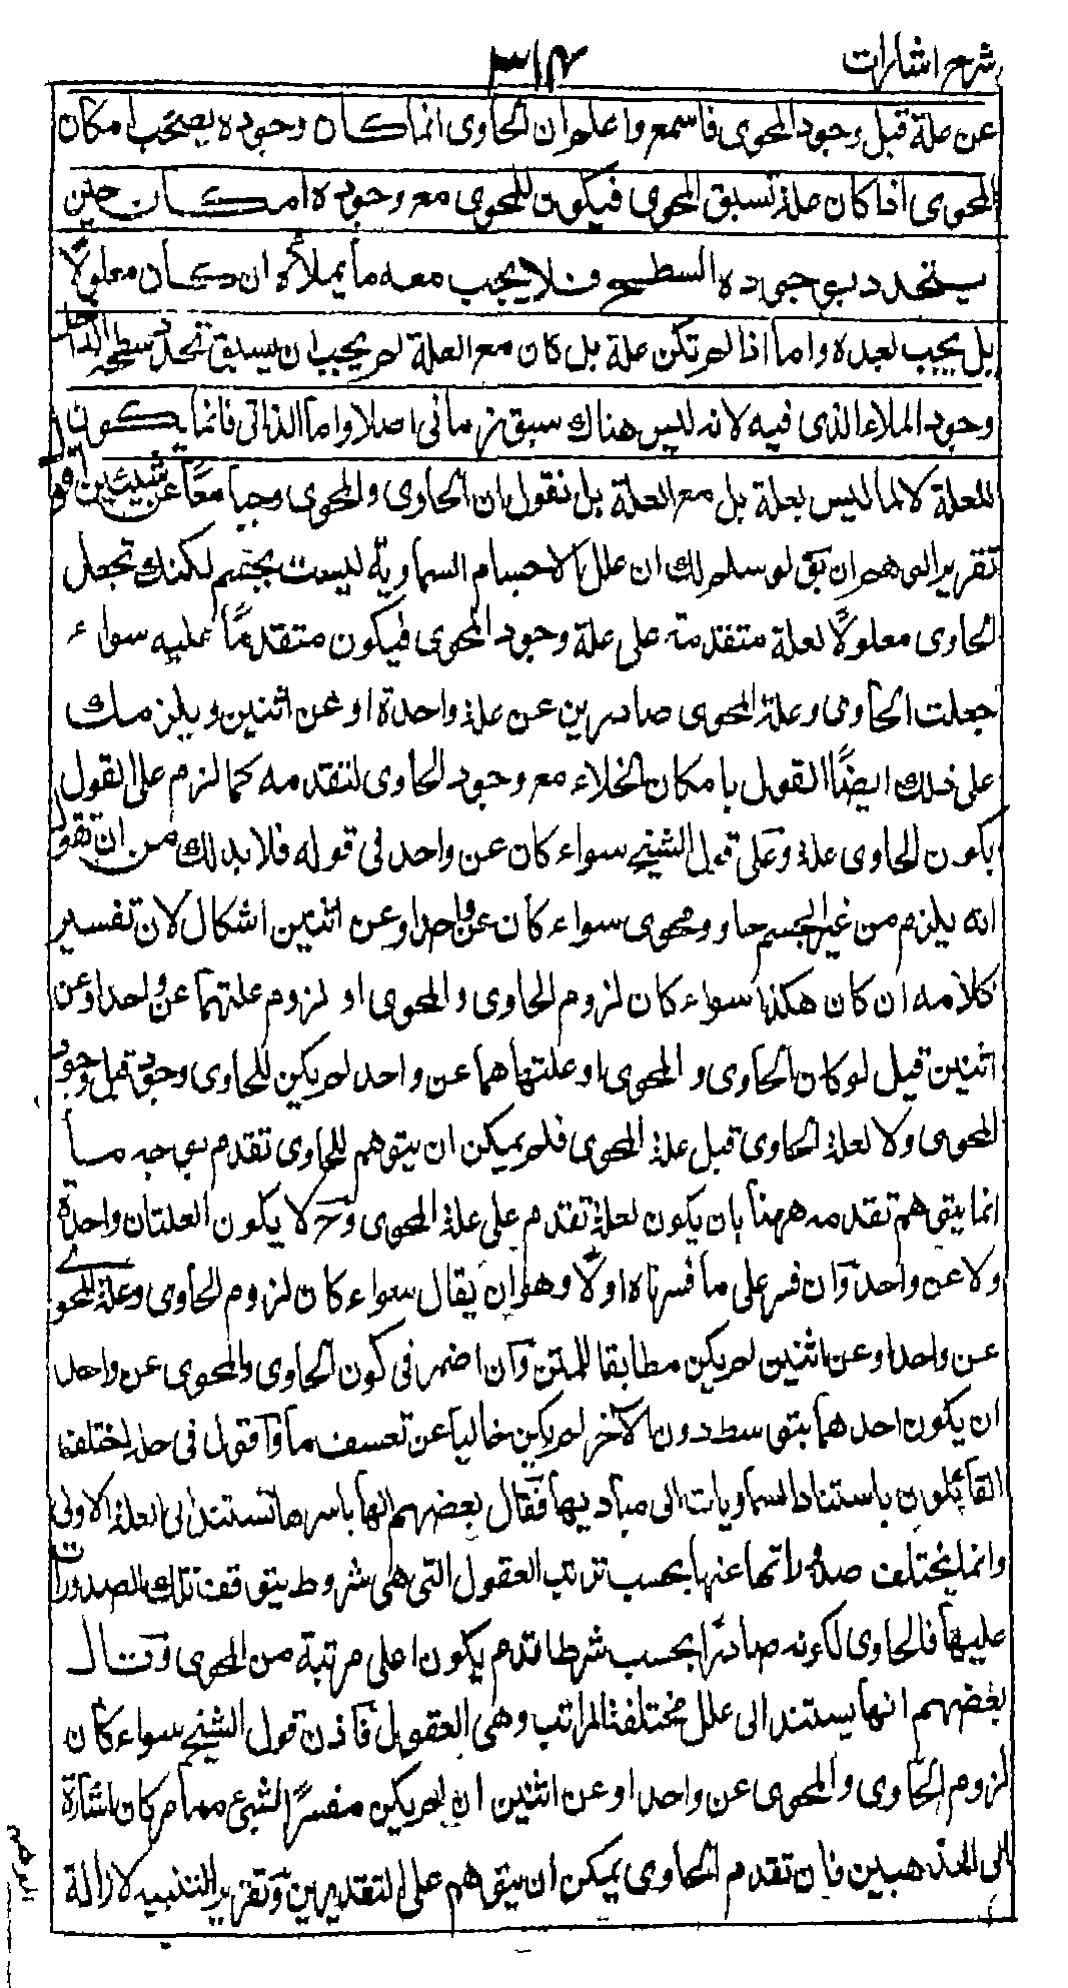 شرح اشارات
٣١٤
عن علة قبل وجود المحوى فاسمع واعلم ان الحاوى انما كان وجوده يصحب امكان
المحوى اذا كان علة تسبق المحوى فيكون للمحوى مع وجوده امكان حين
يتحدد بوجوده السطح فلا يجب معه ما يملأه ان كان معلولاً
بل يجب بعده واما اذا لم تكن علة بل كان مع العلة لم يجب ان يسبق تحدد سطحه الداخل
وجود الملاء الذى فيه لانه ليس هناك سبق زمانى اصلا واما الذاتى فانما يكون
للعلة لا لما ليس بعلة بل مع العلة بل نقول ان الحاوى والمحوى وجبا معاً عن شيئين اقول
تقرير الوهم ان يق لو سلم لك ان علل الاجسام السماوية ليست بجسم لكنك تجعل
الحاوى معلولاً لعلة متقدمة على علة وجود المحوى فيكون متقدماً عليه سواء
جعلت الحاوى وعلة المحوى صادرين عن علة واحدة او عن اثنين ويلزمك
على ذلك ايضاً القول بامكان الخلاء مع وجود الحاوى لتقدمه كما لزم على القول
بكون الحاوى علة وعلى قول الشيخ سواء كان عن واحد فى قوله فلا بد لك من ان تقول
انه يلزم من غير الجسم حاو ومحوى سواء كان عن واحد او عن اثنين اشكال لان تفسير
كلامه ان كان هكذا سواء كان لزوم الحاوى والمحوى او لزوم علتهما عن واحد او عن
اثنين قيل لو كان الحاوى والمحوى او علتهاهما عن واحد لم يكن للحاوى وجود قبل وجود
المحوى ولا لعلة الحاوى قبل علة المحوى فلم يمكن ان يتوهم للحاوى تقدم بوجه ما
انما يتوهم تقدمه ههنا بان يكون لعلة تقدم على علة المحوى وح لا يكون العلتان واحدة
ولا عن واحد وان فسر على ما فسرناه اولاً وهو ان يقال سواء كان لزوم الحاوى وعلة المحوى
عن واحد او عن اثنين لم يكن مطابقا للمتن وان اضمر فى كون الحاوى والمحوى عن واحد
ان يكون احدهما بتوسط دون الآخر لم يكن خاليا عن تعسف ما واقول فى حله اختلف
القائلون باستناد السماويات الى مباديها فقال بعضهم انها باسرها تستند الى العلة الاولى
وانما يختلف صدوراتها عنها بحسب ترتب العقول التى هى شروط يتوقف تلك الصدورات
عليها فالحاوى لكونه صادراً بحسب شرط اقدم يكون اعلى مرتبة من المحوى وقال
بعضهم انها يستند الى علل مختلفة المراتب وهى العقول فاذن قول الشيخ سواء كان
لزوم الحاوى والمحوى عن واحد او عن اثنين ان لم يكن مفسراً لشئ مهام كان اشارة
الى المذهبين فان تقدم الحاوى يمكن ان يتوهم على التقديرين وتقرير التنبيه لازالة